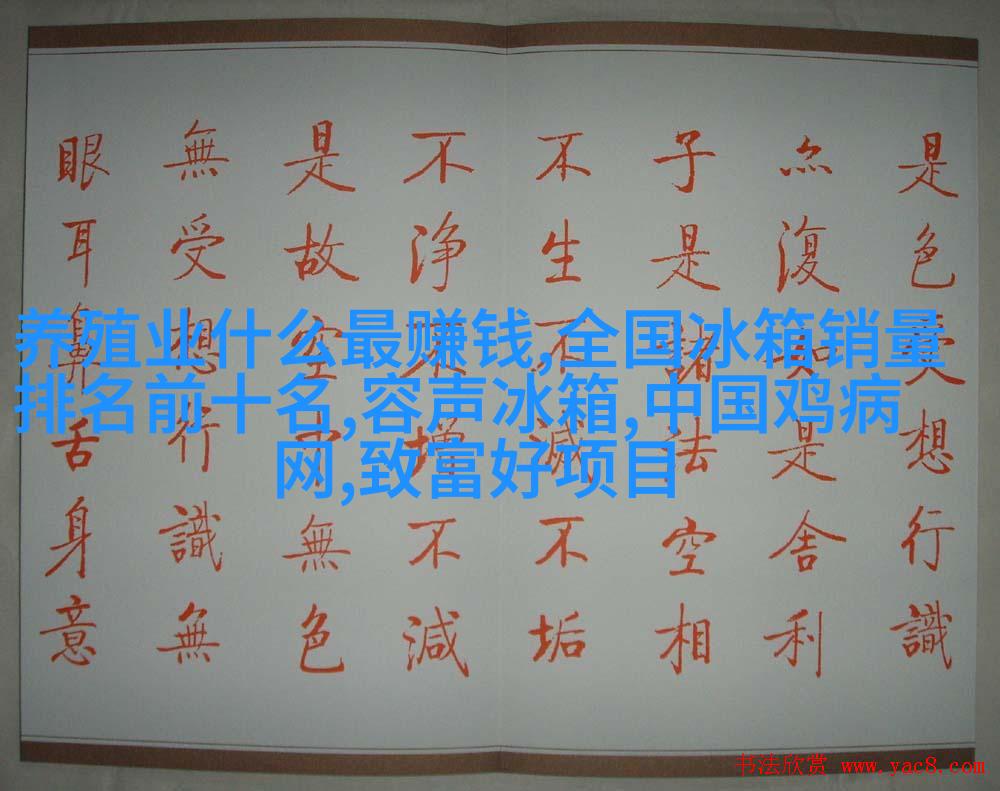 是色受想行識
亦復如是舍利
子是諸法空相
不生不滅不垢
不浄不增不減
是故空中無色
無受想行識無
眼耳鼻舌身意
养殖业什么最赚钱,全国冰箱销量
排名前十名,容声冰箱,中国鸡病
网,致富好项目
书法欣赏 www.yac8.com